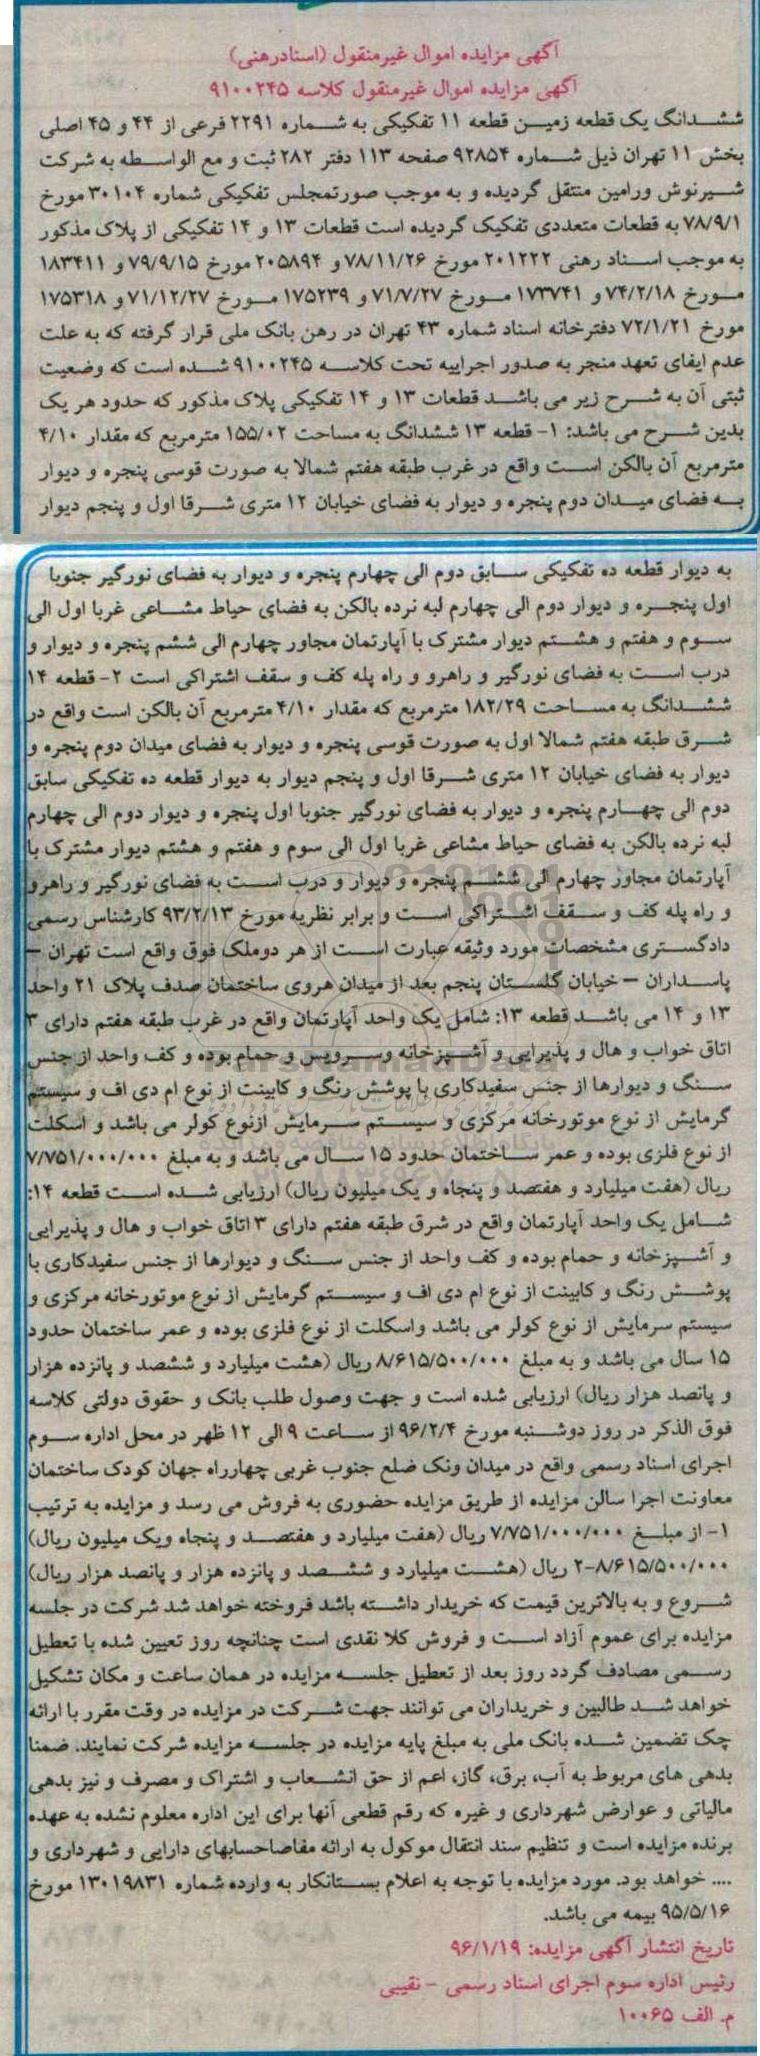 آگهی مزایده اموال غیرمنقول (اسنادرهنی)
آگهی مزایده اموال غیرمنقول کلاسه ۹۱۰۰۲۴۵
ششدانگ یک قطعه زمین قطعه ۱۱ تفکیکی به شماره ۲۲۹۱ فرعی از ۴۴ و ۴۵ اصلی
بخش ۱۱ تهران ذیل شماره ۹۲۸۵۴ صفحه ۱۱۳ دفتر ۲۸۲ ثبت و مع الواسطه به شرکت
شیرنوش ورامین منتقل گردیده و به موجب صورتمجلس تفکیکی شماره ۳۰۱۰۴ مورخ
۷۸/۹/۱ به قطعات متعددی تفکیک گردیده است قطعات ۱۳ و ۱۴ تفکیکی از پلاک مذکور
به موجب اسناد رهنی ۲۰۱۲۲۲ مورخ ۷۸/۱۱/۲۶ و ۲۰۵۸۹۴ مورخ ۷۹/۹/۱۵ و ۱۸۳۴۱۱
مورخ ۷۴/۲/۱۸ و ۱۷۳۷۴۱ مورخ ۷۱/۷/۲۷ و ۱۷۵۲۳۹ مورخ ۷۱/۱۲/۲۷ و ۱۷۵۳۱۸
مورخ ۷۲/۱/۲۱ دفترخانه اسناد شماره ۴۳ تهران در رهن بانک ملی قرار گرفته که به علت
عدم ایفای تعهد منجر به صدور اجراییه تحت کلاسه ۹۱۰۰۲۴۵ شده است که وضعیت
ثبتی آن به شرح زیر می باشد قطعات ۱۳ و ۱۴ تفکیکی پلاک مذکور که حدود هر یک
بدین شرح می باشد: ۱- قطعه ۱۳ ششدانگ به مساحت ۱۵۵/۰۲ مترمربع که مقدار ۴/۱۰
مترمربع آن بالکن است واقع در غرب طبقه هفتم شمالا به صورت قوسی پنجره و دیوار
به فضای میدان دوم پنجره و دیوار به فضای خیابان ۱۲ متری شرقا اول و پنجم دیوار
به دیوار قطعه ده تفکیکی سابق دوم الی چهارم پنجره و دیوار به فضای نورگیر جنوبا
اول پنجره و دیوار دوم الی چهارم لبه نرده بالکن به فضای حیاط مشاعی غربا اول الی
سوم و هفتم و هشتم دیوار مشترک با آپارتمان مجاور چهارم الی ششم پنجره و دیوار و
درب است به فضای نورگیر و راهرو و راه پله کف و سقف اشتراکی است ۲- قطعه ۱۴
ششدانگ به مساحت ۱۸۲/۲۹ مترمربع که مقدار ۴/۱۰ مترمربع آن بالکن است واقع در
شرق طبقه هفتم شمالا اول به صورت قوسی پنجره و دیوار به فضای میدان دوم پنجره و
دیوار به فضای خیابان ۱۲ متری شرقا اول و پنجم دیوار به دیوار قطعه ده تفکیکی سابق
دوم الی چهارم پنجره و دیوار به فضای نورگیر جنوبا اول پنجره و دیوار دوم الی چهارم
لبه نرده بالکن به فضای حیاط مشاعی غربا اول الی سوم و هفتم و هشتم دیوار مشترک با
آپارتمان مجاور چهارم الی ششم پنجره و دیوار و درب است به فضای نورگیر و راهرو
و راه پله کف و سقف اشتراکی است و برابر نظریه مورخ ۹۳/۲/۱۳ کارشناس رسمی
دادگستری مشخصات مورد وثیقه عبارت است از هر دوملک فوق واقع است تهران –
پاسداران – خیابان گلستان پنجم بعد از میدان هروی ساختمان صدف پلاک ۲۱ واحد
۱۳ و ۱۴ می باشد قطعه ۱۳: شامل یک واحد آپارتمان واقع در غرب طبقه هفتم دارای ۳
اتاق خواب و هال و پذیرایی و آشپزخانه وسرویس و حمام بوده و کف واحد از جنس
سنگ و دیوارها از جنس سفیدکاری با پوشش رنگ و کابینت از نوع ام دی اف و سیستم
گرمایش از نوع موتورخانه مرکزی و سیستم سرمایش ازنوع کولر می باشد و اسکلت
از نوع فلزی بوده و عمر ساختمان حدود ۱۵ سال می باشد و به مبلغ ۷/۷۵۱/۰۰۰/۰۰۰
ریال (هفت میلیارد و هفتصد و پنجاه و یک میلیون ریال) ارزیابی شده است قطعه ۱۴:
شامل یک واحد آپارتمان واقع در شرق طبقه هفتم دارای ۳ اتاق خواب و هال و پذیرایی
و آشپزخانه و حمام بوده و کف واحد از جنس سنگ و دیوارها از جنس سفیدکاری با
پوشش رنگ و کابینت از نوع ام دی اف و سیستم گرمایش از نوع موتورخانه مرکزی و
سیستم سرمایش از نوع کولر می باشد واسکلت از نوع فلزی بوده و عمر ساختمان حدود
۱۵ سال می باشد و به مبلغ ۸/۶۱۵/۵۰۰/۰۰۰ ریال (هشت میلیارد و ششصد و پانزده هزار
و پانصد هزار ریال) ارزیابی شده است و جهت وصول طلب بانک و حقوق دولتی کلاسه
فوق الذکر در روز دوشنبه مورخ ۹۶/۲/۴ از ساعت ۹ الی ۱۲ ظهر در محل اداره سوم
اجرای اسناد رسمی واقع در میدان ونک ضلع جنوب غربی چهارراه جهان کودک ساختمان
معاونت اجرا سالن مزایده از طریق مزایده حضوری به فروش می رسد و مزایده به ترتیب
۱- از مبلغ ۷/۷۵۱/۰۰۰/۰۰۰ ریال (هفت میلیارد و هفتصد و پنجاه ویک میلیون ریال)
۲-۸/۶۱۵/۵۰۰/۰۰۰ ریال (هشت میلیارد و ششصد و پانزده هزار و پانصد هزار ریال)
شروع و به بالاترین قیمت که خریدار داشته باشد فروخته خواهد شد شرکت در جلسه
مزایده برای عموم آزاد است و فروش کلا نقدی است چنانچه روز تعیین شده با تعطیل
رسمی مصادف گردد روز بعد از تعطیل جلسه مزایده در همان ساعت و مکان تشکیل
خواهد شد طالبین و خریداران می توانند جهت شرکت در مزایده در وقت مقرر با ارائه
چک تضمین شده بانک ملی به مبلغ پایه مزایده در جلسه مزایده شرکت نمایند. ضمنا
بدهی های مربوط به آب، برق، گاز، اعم از حق انشعاب و اشتراک و مصرف و نیز بدهی
مالیاتی و عوارض شهرداری و غیره که رقم قطعی آنها برای این اداره معلوم نشده به عهده
برنده مزایده است و تنظیم سند انتقال موکول به ارائه مفاصاحسابهای دارایی و شهرداری و
.... خواهد بود. مورد مزایده با توجه به اعلام بستانکار به وارده شماره ۱۳۰۱۹۸۳۱ مورخ
۹۵/۵/۱۶ بیمه می باشد.
تاریخ انتشار آگهی مزایده: ۹۶/۱/۱۹
رئیس اداره سوم اجرای اسناد رسمی - نقیبی
م. الف ۱۰۰۶۵